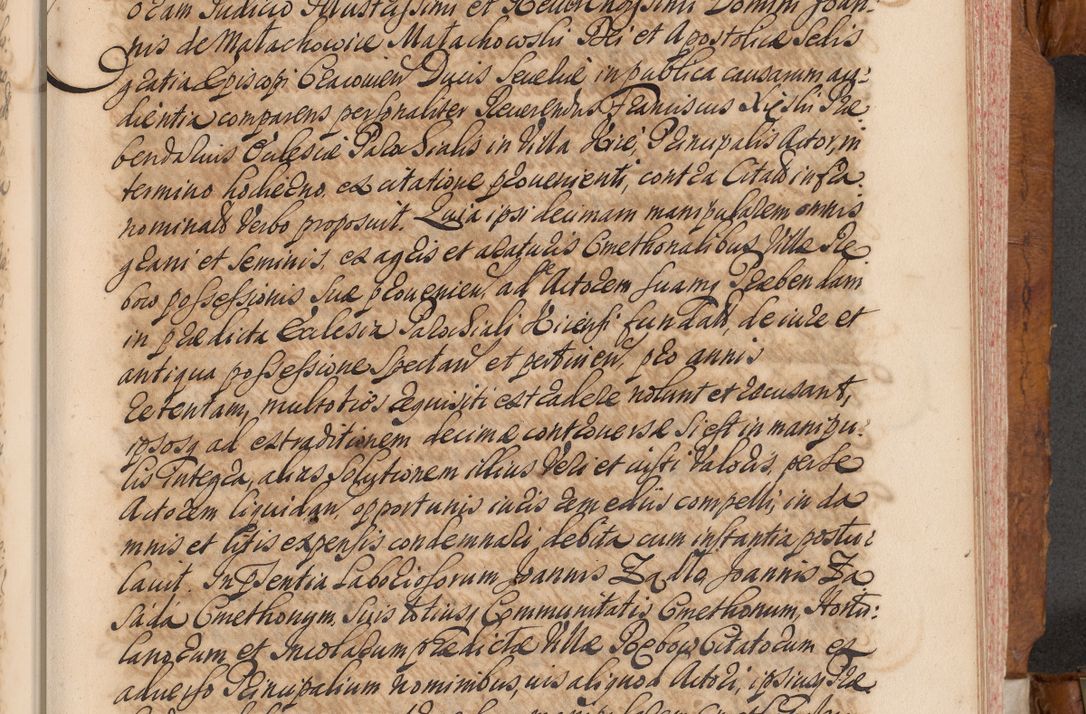 oram Judicio Illustrissimi et Reverendissimi Domini Joan-
nis de Małachowice Małachowski Dei et Apostolicæ Sedis
gratia Episcopi Cracovien Ducis Severiæ in publica causarum au-
dientia comparens personaliter Reverendus Franciscus Præ-
bendarius Ecclesiæ Parochialis in Villa Principalis Actor, in
termino hodierno ex citatione provenienti, contra Citatos infra
nominatos Verbo proposuit. Quia ipsi decimam manipularem omnis
grani et seminis, ex agris et araturis Cmethonalibus Villæ Re-
bow possessionis suæ provenien, ad Actorem suamq Præbendam
in prædicta Ecclesia Parochiali fundatam, de iure et
antiqua possessione spectan et pertinen, pro annis
retentam, multoties requisiti extradere nolunt et recusant,
ipsosq ad extraditionem decimæ controversæ si est in manipu-
lis integra, alias solutionem illius veri et iusti valoris, per se
Actorem liquidan, opportunis iuris remediis compelli, in da
mnis et litis expensis condemnari debita cum instantia postu-
lavit. In Psentia Laboriosorum Joannis Joannis Za
sada Cmethonum, suis totiusq Communitatis Cmethonum, Hortu-
lanorum et Incolarum prædictæ Villæ Rebow Citatorum ex
adverso Principalium nominibus, vis aliquod Actori, ipsiusq Præ-